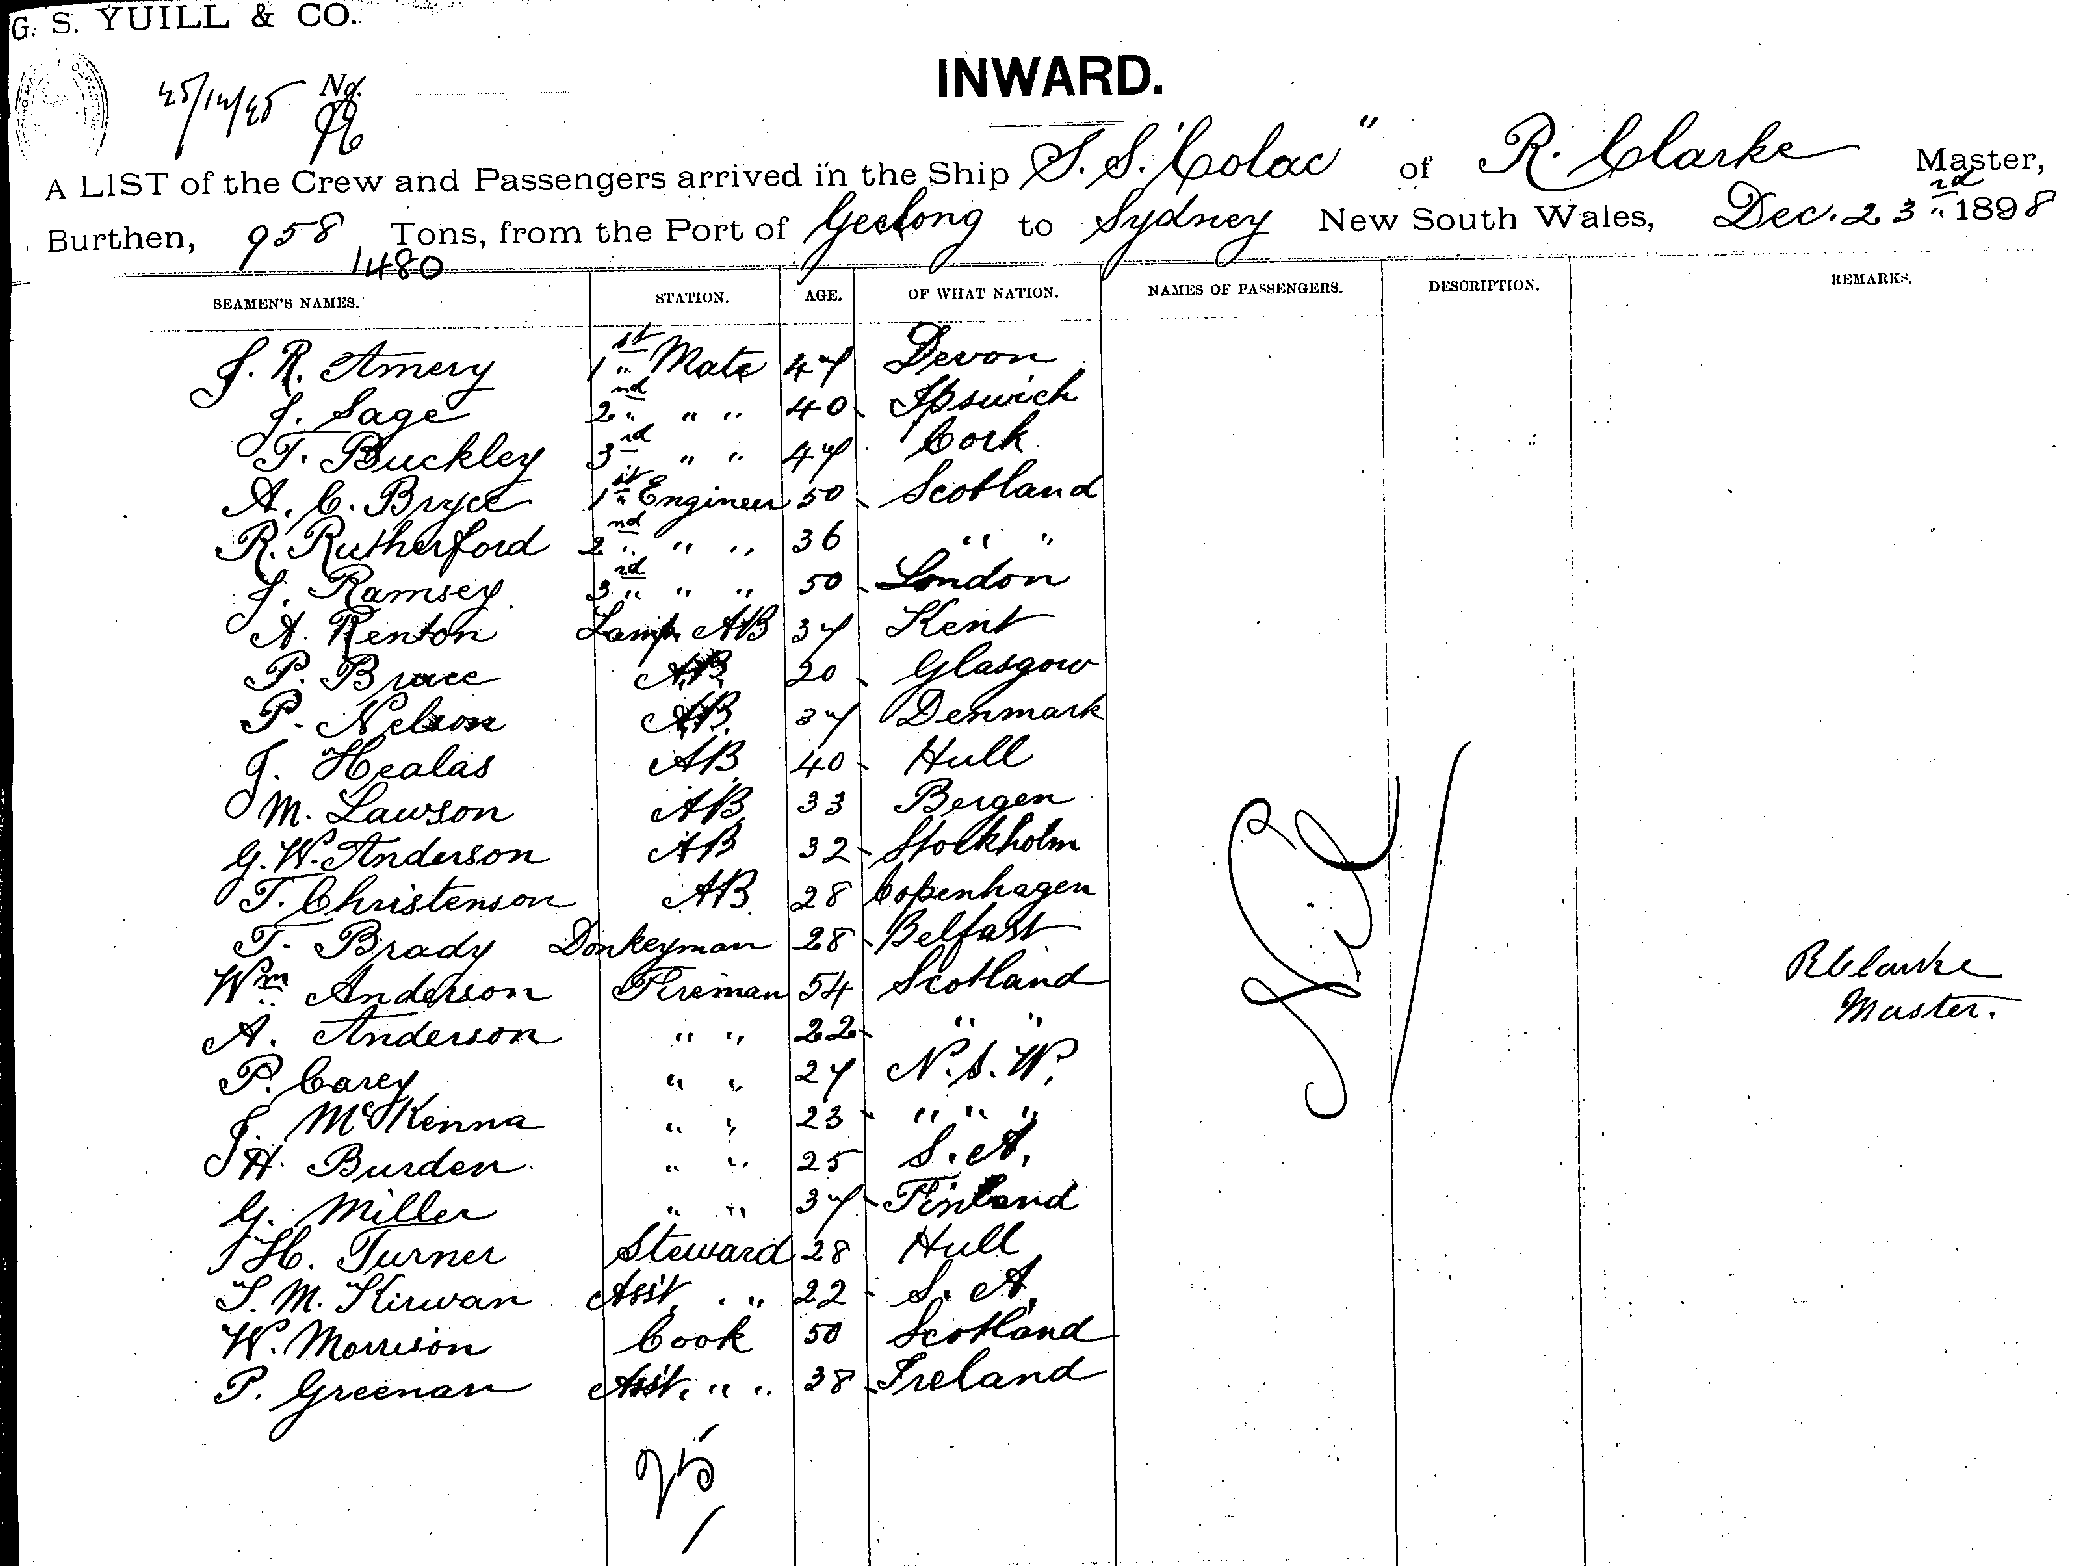 G. S. YUILL & CO.
No.
96
INWARD.
A LIST of the Crew and Passengers arrived in the Ship S. S. "Colac" of R. Clarke Master,
Burthen, 958 Tons, from the Port of Geelong to Sydney New South Wales, Dec. 23rd 1898
1480
SEAMEN'S NAMES. STATION. AGE. OF WHAT NATION. NAMES OF PASSENGERS. DESCRIPTION. REMARKS.
J. R. Amery 1st Mate 47 Devon
J. Sage 2nd " " 40 Ipswich
T. Buckley 3rd " " 47 Cork
A. C. Bryce 1st Engineer 50 Scotland
R. Rutherford 2nd " " 36 " "
J. Ramsey 3rd " " 50 London
A. Renton Lamps AB 37 Kent
P. Bruce AB 20 Glasgow
P. Nelson AB 37 Denmark
J. Healas AB 40 Hull
M. Lawson AB 33 Bergen
G. W. Anderson AB 32 Stockholm
T. Christenson AB 28 Copenhagen
T. Brady Donkeyman 28 Belfast
Wm Anderson Fireman 54 Scotland
A. Anderson " " 22 " "
P. Carey " " 27 N. S. W.
J. McKenna " " 23 " " "
H. Burden " " 25 S. A.
G. Miller " " 37 Finland
H. Turner Steward 28 Hull
T. M. Kirwan Asst. " " 22 S. A.
W. Morrison Cook 50 Scotland
P. Greenan Asst. " " 38 Ireland
Nil
R Clarke
Master.
25